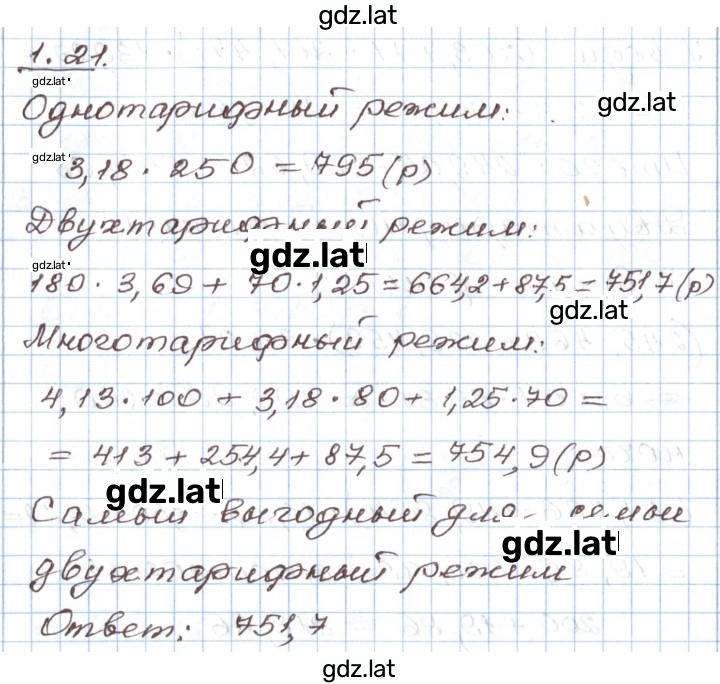 gdz.lat
1.21.
gdz.lat
Однотарифный режим:
gdz.lat
gdz.lat
3,18 · 250 = 795 (р)
Двухтарифный режим:
gdz.lat
gdz.lat
180 · 3,69 + 70 · 1,25 = 664,2 + 87,5 = 751,7 (р)
gdz.lat
Многотарифный режим:
4,13 · 100 + 3,18 · 80 + 1,25 · 70 =
= 413 + 254,4 + 87,5 = 754,9 (р)
gdz.lat
Самый выгодный для семьи
gdz.lat
двухтарифный режим
Ответ: 751,7
gdz.lat